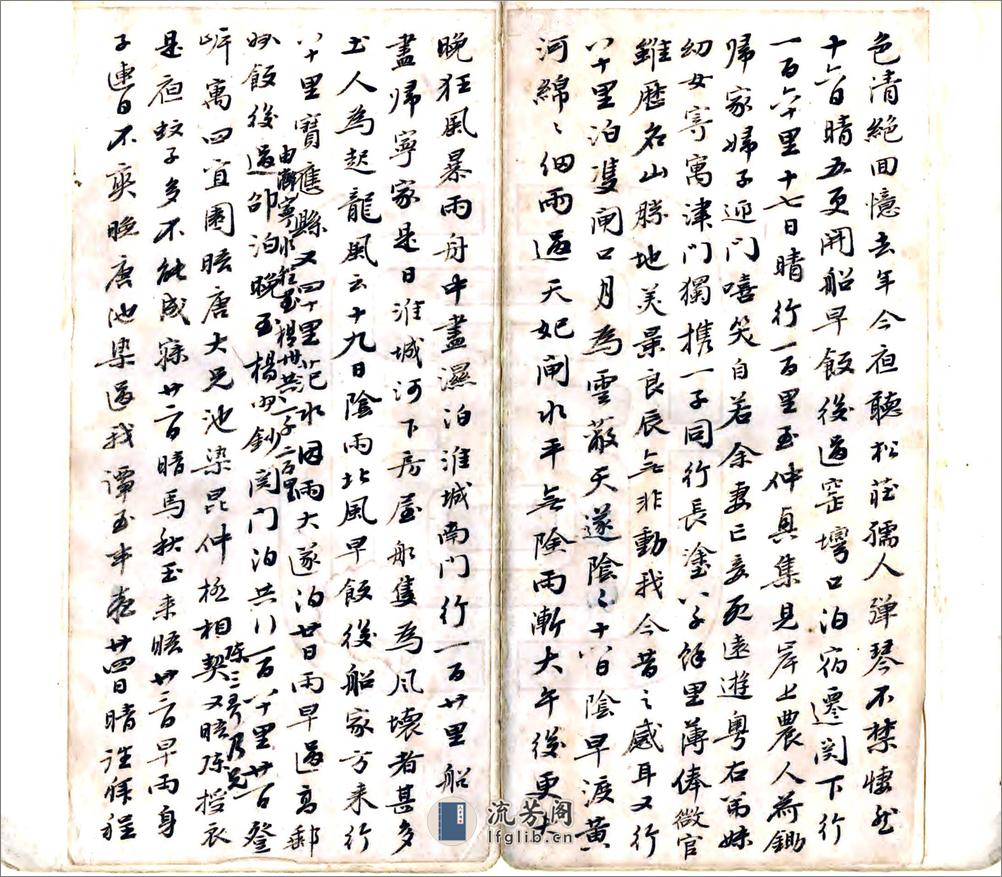 色清絕回憶去年今夜聽松莊孺人彈琴不禁悽然
十六日晴五更開船早飯後過窑灣口泊宿遷関下行
一百六十里十七日晴行一百里至仲興集見岸上農人荷鋤
歸家婦子迎門嘻笑自若余妻亡妾死遠遊粵右弟妹
幼女寄寓津門獨攜一子同行長塗八千餘里薄俸微官
雖歷名山勝地美景良辰無非動我今昔之感耳又行
八十里泊雙閘口月為雲蔽天遂陰陰十八日陰早渡黃
河綿綿細雨過天妃閘水平無險雨漸大午後更大
晚狂風暴雨舟中盡濕泊淮城南门行一百廿里船
盡歸寧家是日淮城河下房屋船隻為風壞者甚多
土人為起龍風云十九日陰雨北風早飯後船家方来行
八十里寶應縣又四十里氾水因雨大遂泊廿日雨早過高郵
由濟寧水程至揚州共一千二百里
飯後過邵泊晚至楊州鈔関门泊共行一百八十里廿一日登
岸寓四宜園晤唐大兄池染昆仲極相契又晤陈授衣
陈三琴乃兄
是夜蚊子多不能成寐廿二日晴馬秋玉来晤廿三日早雨身
子連日不爽晚唐池染過我譚至半夜廿四日晴